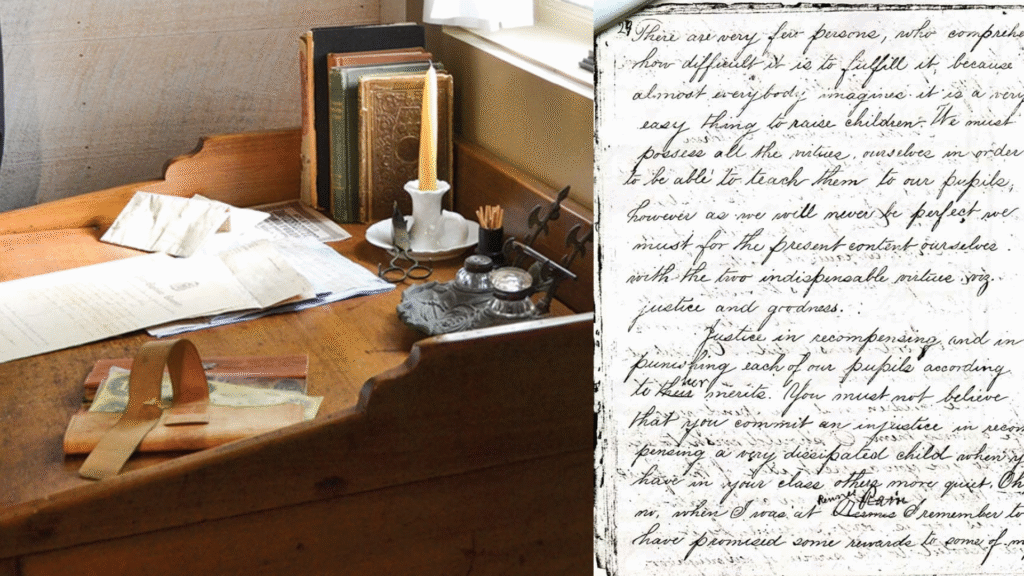 29 There are very few persons, who comprehe
how difficult it is to fulfill it because
almost everybody imagines it is a very
easy thing to raise children. We must
possess all the virtues, ourselves in order
to be able to teach them to our pupils,
however as we will never be perfect we
must for the present content ourselves
with the two indispensable virtues viz.
justice and goodness.
Justice in recompensing and in
punishing each of our pupils according
to their merits. You must not believe
that you commit an injustice in recom
pensing a very dissipated child when y
have in your class others more quiet. Oh
no, when I was at Rennes I remember to
have promised some rewards to some of m